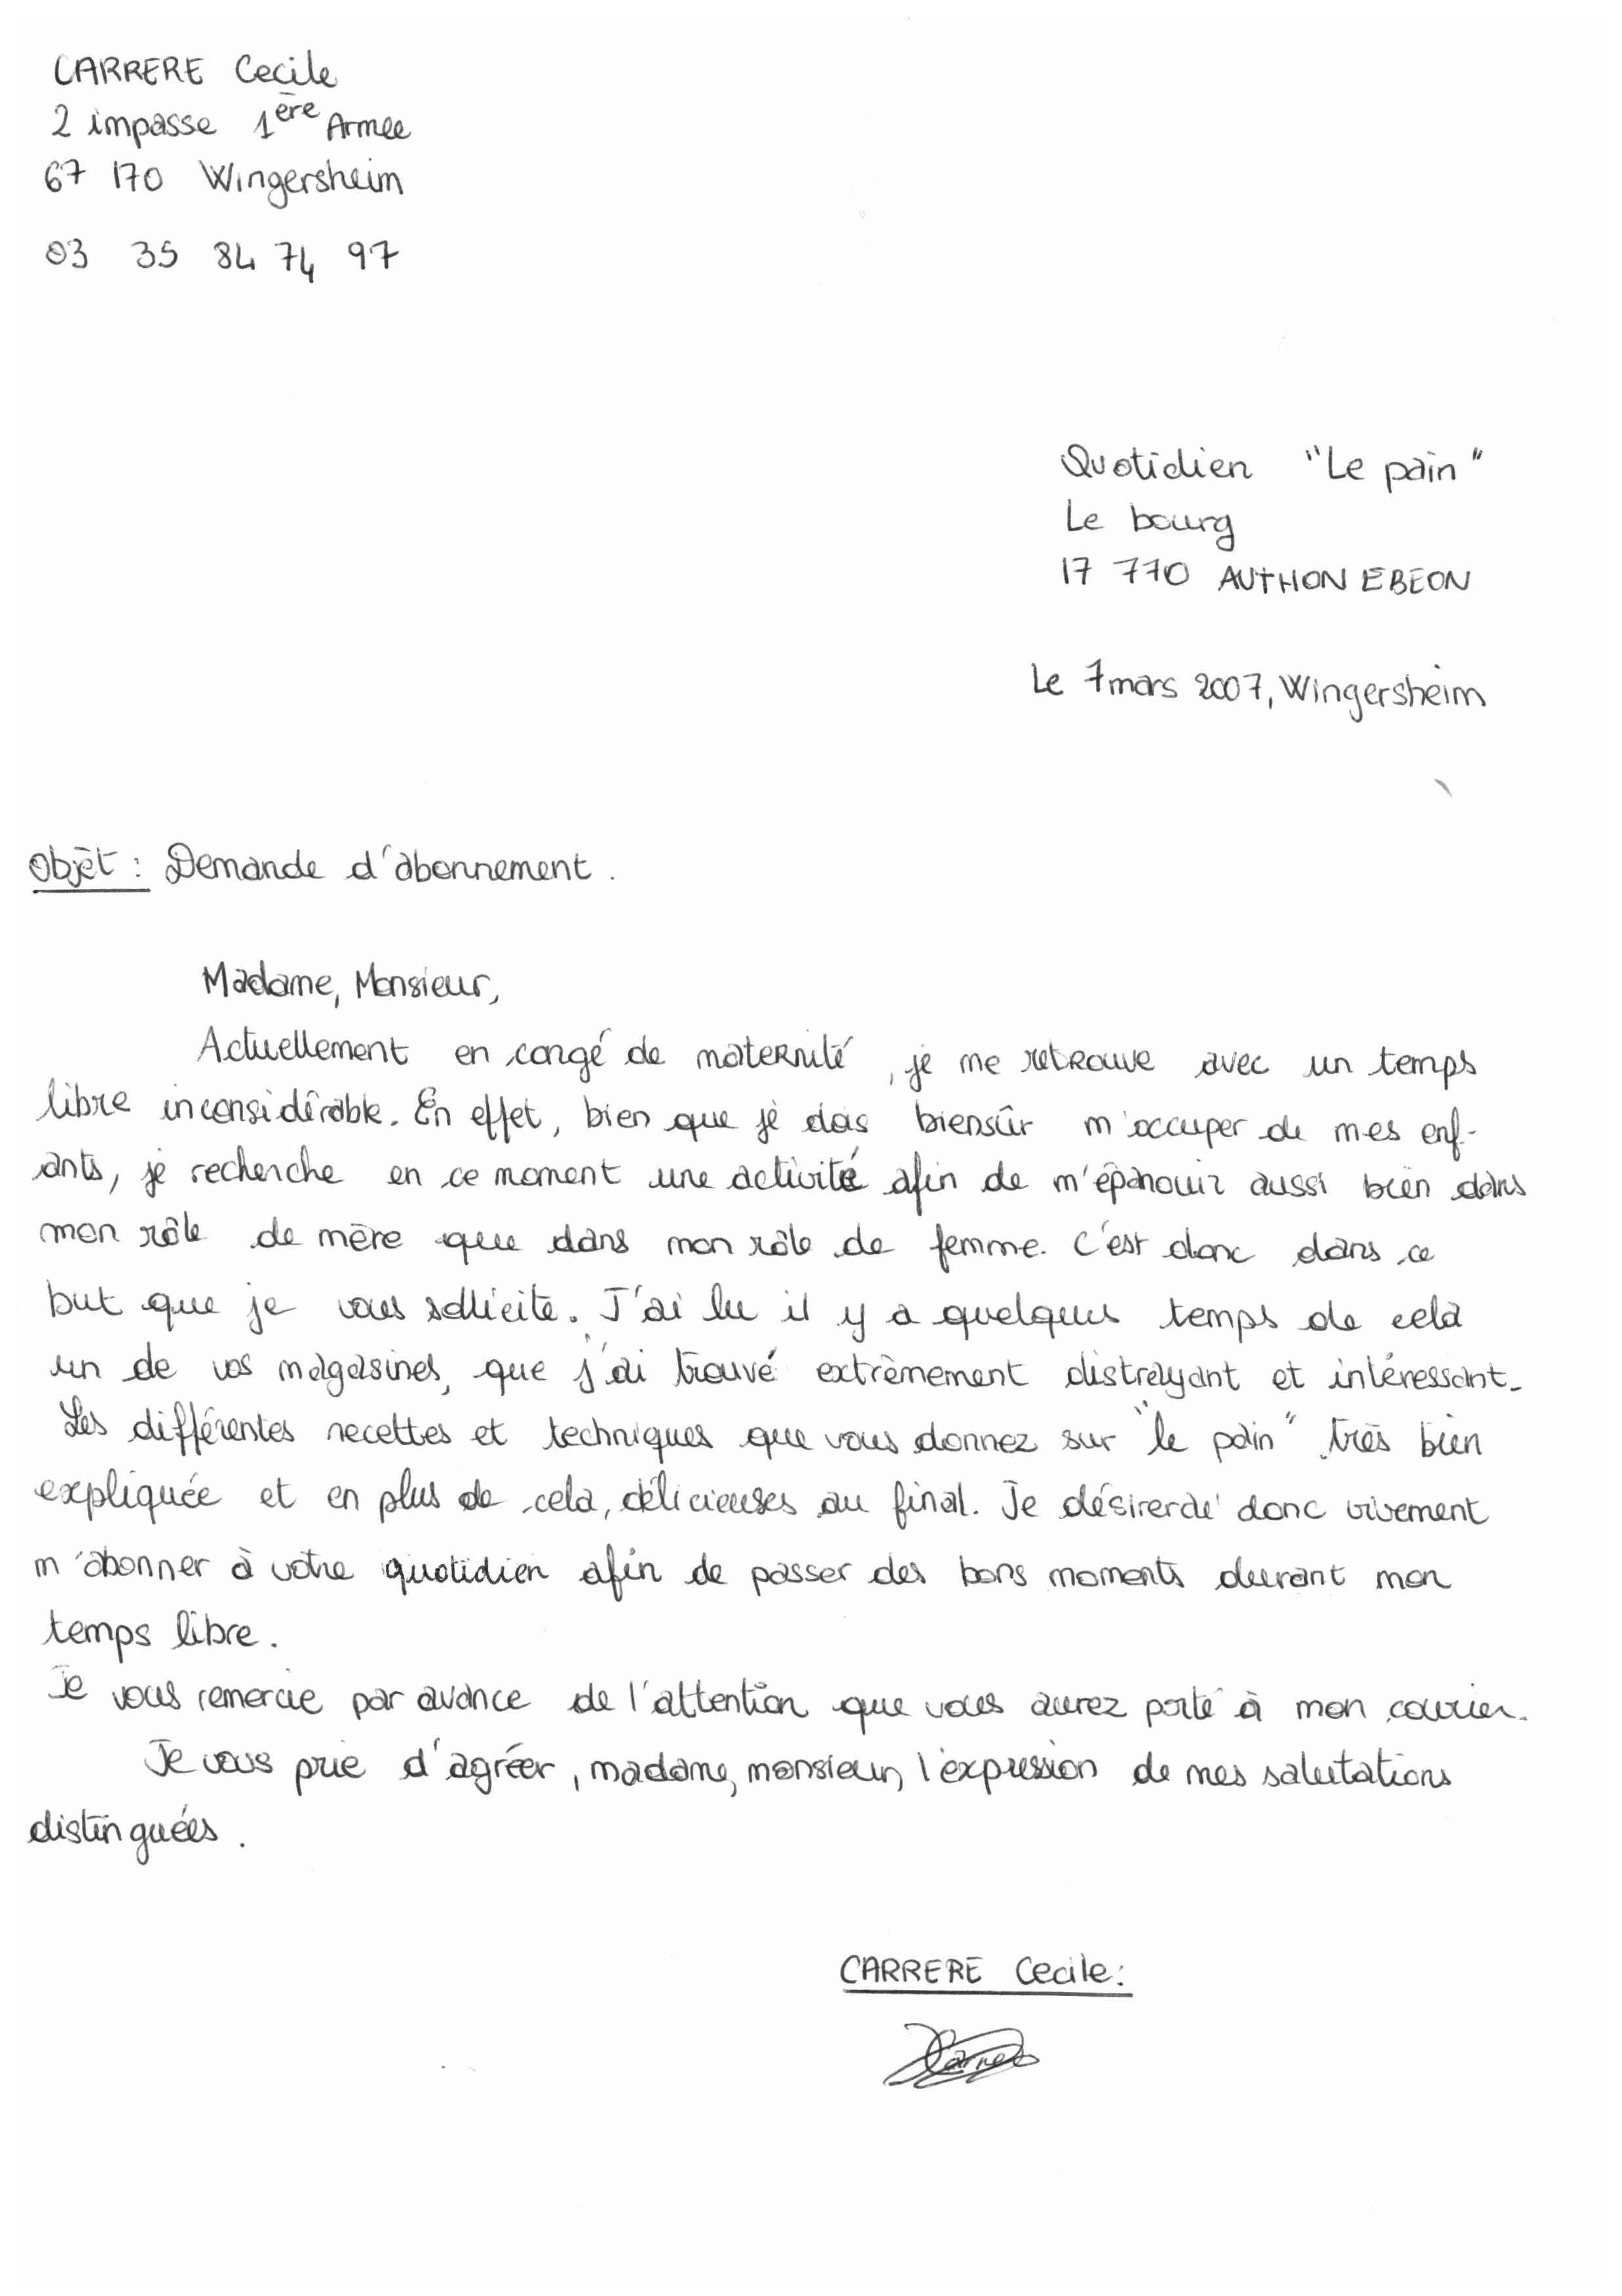 CARRERE Cecile
2 impasse 1ère Armee
67 170 Wingersheim
03 35 84 74 97
Quotidien "Le pain"
Le bourg
17 770 AUTHON EBEON
Le 7 mars 2007, Wingersheim
Objet : Demande d'abonnement.
Madame, Monsieur,
Actuellement en congé de maternité, je me retrouve avec un temps
libre inconsidérable. En effet, bien que je dois biensûr m'occuper de mes enf-
ants, je recherche en ce moment une activité afin de m'épanouir aussi bien dans
mon rôle de mère que dans mon rôle de femme. C'est donc dans ce
but que je vous sollicite. J'ai lu il y a quelques temps de cela
un de vos magasines, que j'ai trouvé extrèmement distrayant et intéressant.
Les différentes recettes et techniques que vous donnez sur "le pain" très bien
expliquée et en plus de cela, délicieuses au final. Je désirerai donc vivement
m'abonner à votre quotidien afin de passer des bons moments durant mon
temps libre.
Je vous remercie par avance de l'attention que vous aurez porté à mon courrier.
Je vous prie d'agréer, madame, monsieur, l'expression de mes salutations
distinguées.
CARRERE Cecile: